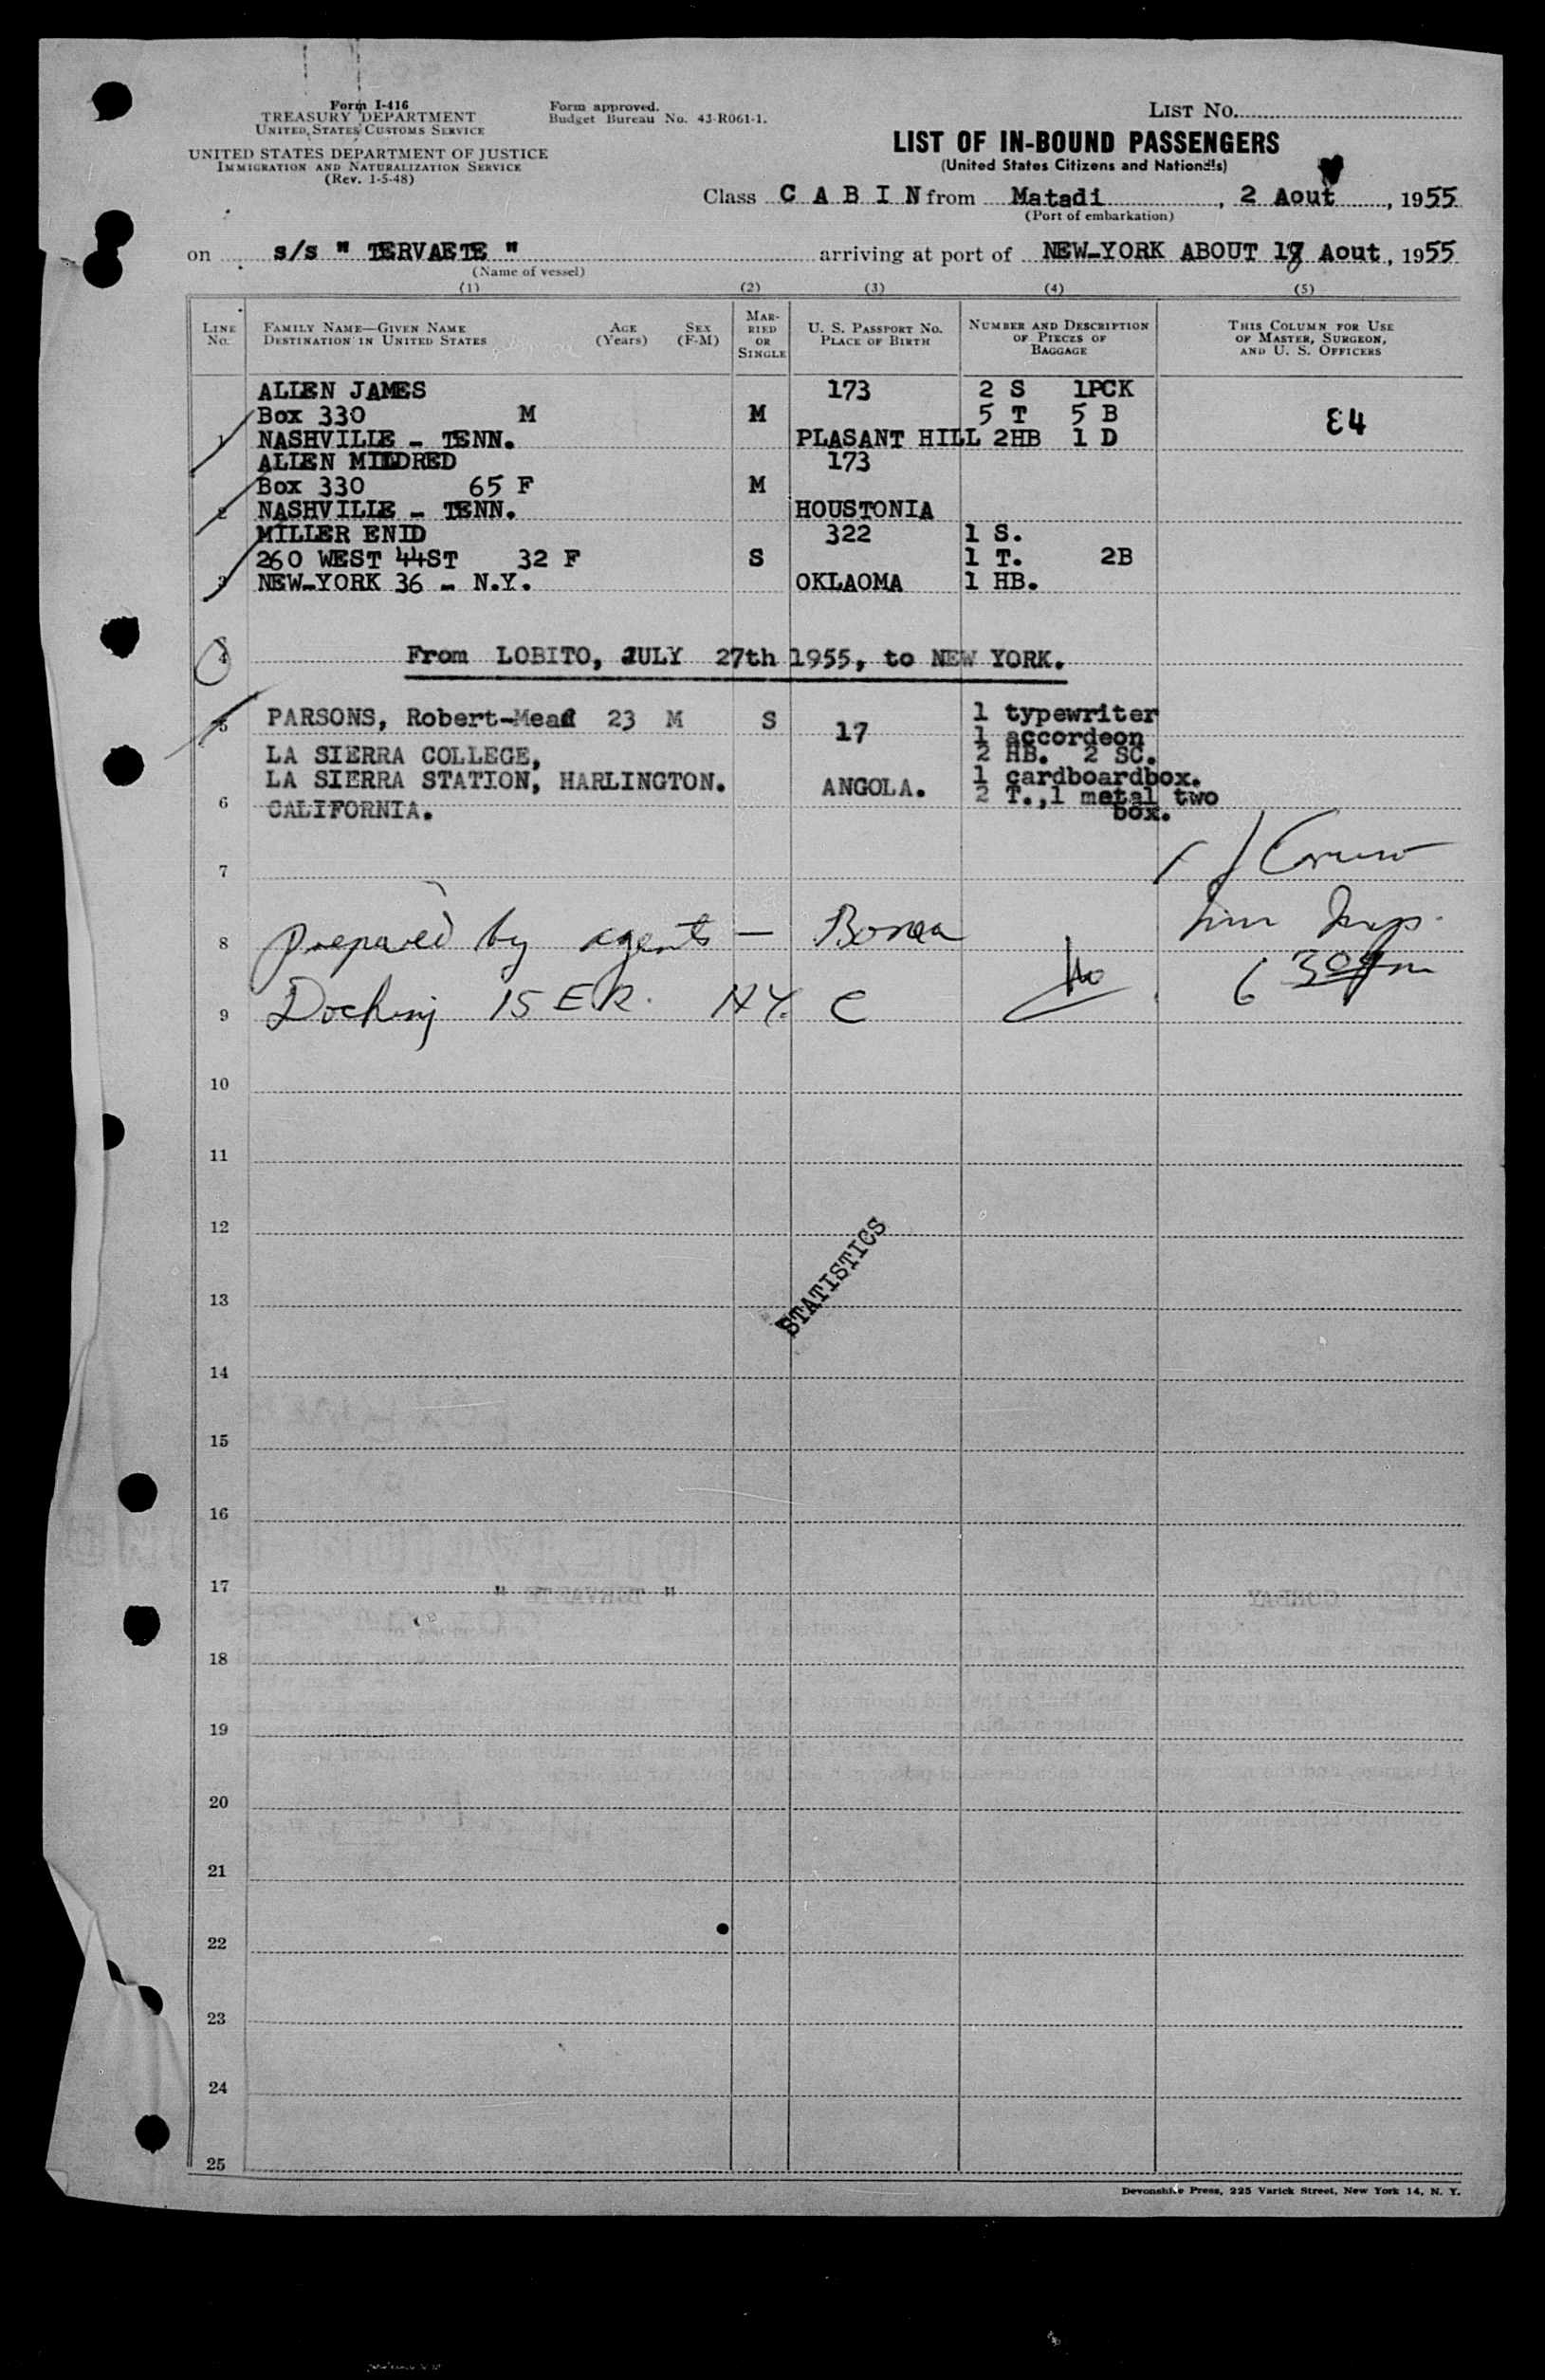 Form I-416
TREASURY DEPARTMENT
UNITED STATES CUSTOMS SERVICE
UNITED STATES DEPARTMENT OF JUSTICE
IMMIGRATION AND NATURALIZATION SERVICE
(Rev. 1-5-48)
Form approved.
Budget Bureau No. 43-R061-1.
LIST NO.
LIST OF IN-BOUND PASSENGERS
(United States Citizens and Nationals)
Class C A B I N from Matadi, 2 Aout, 1955
(Port of embarkation)
on s/s " TERVAETE " arriving at port of NEW-YORK ABOUT 18 Aout, 1955
(Name of vessel)
(1) (2) (3) (4) (5)
LINE NO.
FAMILY NAME—GIVEN NAME AGE SEX
DESTINATION IN UNITED STATES (Years) (F-M)
MARRIED OR SINGLE
U. S. PASSPORT NO.
PLACE OF BIRTH
NUMBER AND DESCRIPTION
OF PIECES OF
BAGGAGE
THIS COLUMN FOR USE
OF MASTER, SURGEON,
AND U. S. OFFICERS
ALLEN JAMES 173 2 S 1PCK
Box 330 M M 5 T 5 B
1 NASHVILLE - TENN. PLASANT HILL 2HB 1 D
84
ALLEN MILDRED 173
Box 330 65 F M
2 NASHVILLE - TENN. HOUSTONIA
MILLER ENID 322 1 S.
260 WEST 44ST 32 F S 1 T. 2B
3 NEW-YORK 36 - N.Y. OKLAOMA 1 HB.
4 From LOBITO, JULY 27th 1955, to NEW YORK.
5 PARSONS, Robert-Mead 23 M S 17 1 typewriter
1 accordeon
LA SIERRA COLLEGE, 2 HB. 2 SC.
LA SIERRA STATION, HARLINGTON. ANGOLA. 1 cardboardbox.
6 CALIFORNIA. 2 T.,1 metal two
box.
7
8 Prepared by agents —
Imm Insp.
9 Docking 15 E R. N.Y. C
6 30 pm
10
11
12
STATISTICS
13
14
15
16
17
" TERVAETE "
18
19
20
21
22
23
24
25
Devonshire Press, 225 Varick Street, New York 14, N. Y.